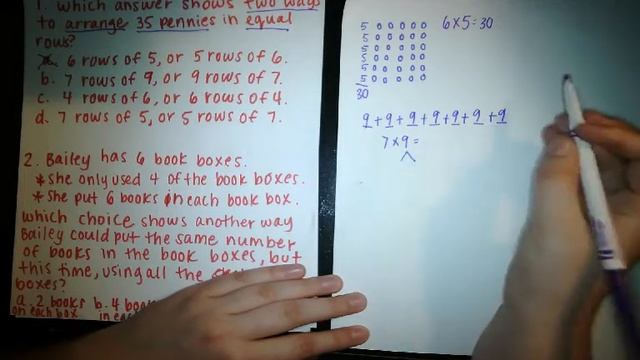 1. Which answer shows two ways
to arrange 35 pennies in equal
rows?
a. 6 rows of 5, or 5 rows of 6.
b. 7 rows of 9, or 9 rows of 7.
c. 4 rows of 6, or 6 rows of 4.
d. 7 rows of 5, or 5 rows of 7.
2. Bailey has 6 book boxes.
*she only used 4 of the book boxes.
*she put 6 books in each book box.
Which choice shows another way
Bailey could put the same number
of books in the book boxes, but
this time, using all the
boxes?
a. 2 books b. 4
in each box in
5 o o o o o 6x5=30
5 o o o o o
5 o o o o o
5 o o o o o
5 o o o o o
5 o o o o o
30
9+9+9+9+9+9+9
7x9=